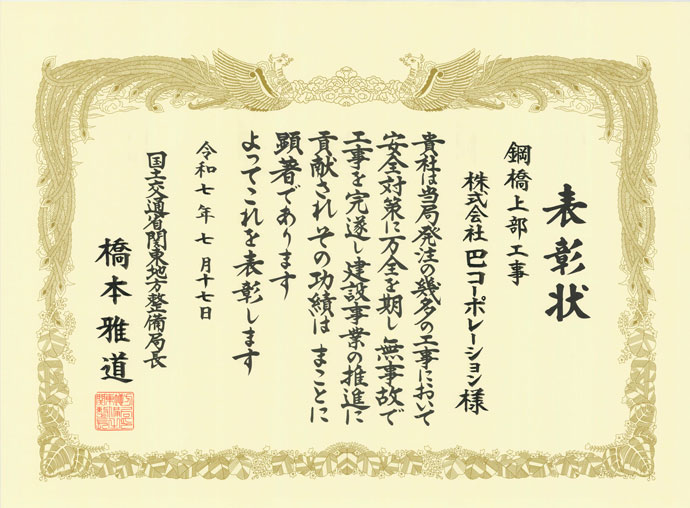 表彰状
鋼橋上部工事
株式会社巴コーポレーション様
貴社は当局発注の幾多の工事において
安全対策に万全を期し無事故で
工事を完遂し建設事業の推進に
貢献されその功績はまことに
顕著であります
よってこれを表彰します
令和七年七月十七日
国土交通省関東地方整備局長
橋本雅道